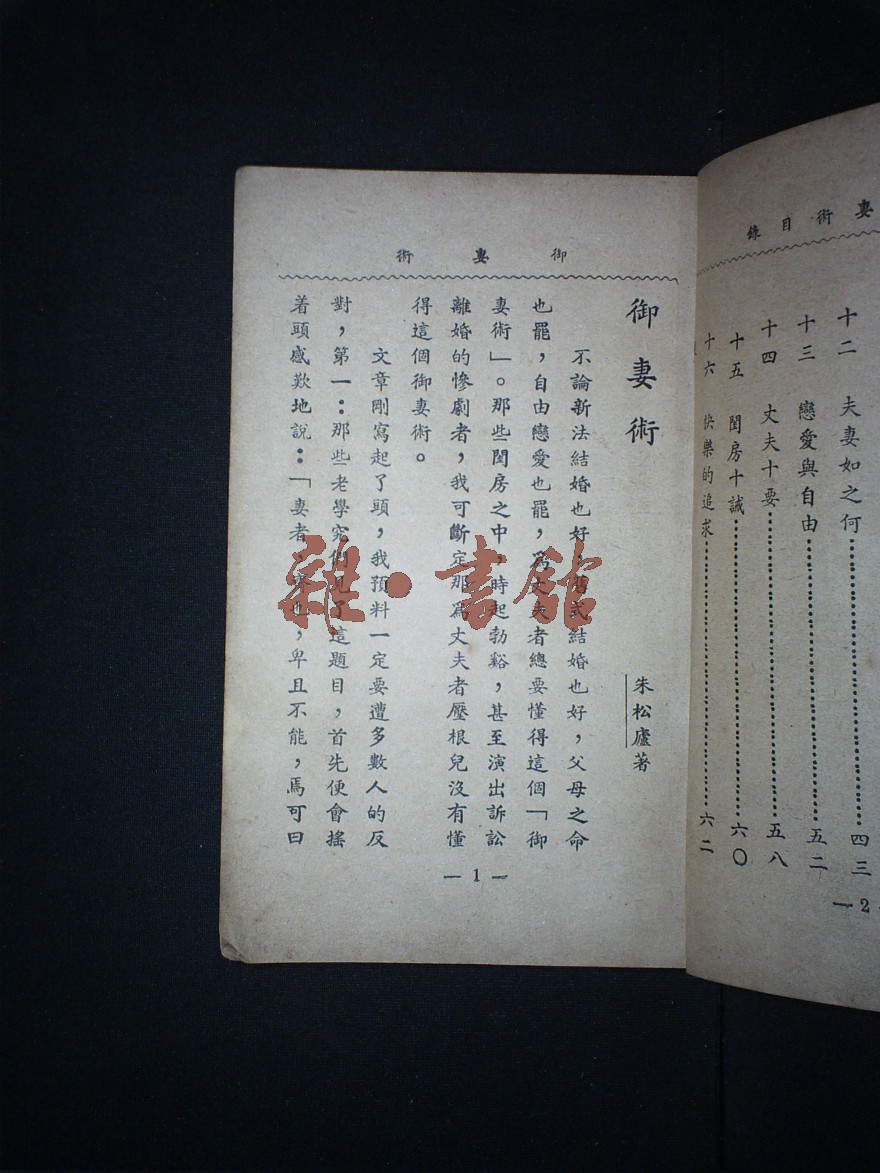 妻術目錄
十二 夫妻如之何……四三
十三 戀愛與自由……五二
十四 丈夫十要……五八
十五 閨房十誡……六〇
十六 快樂的追求……六二
— 2
御妻術
御妻術
朱松廬著
不論新法結婚也好，舊式結婚也好，父母之命
也罷，自由戀愛也罷，爲丈夫者總要懂得這個「御
妻術」。那些閨房之中，時起勃谿，甚至演出訴訟
離婚的慘劇者，我可斷定那爲丈夫者壓根兒沒有懂
得這個御妻術。
文章剛寫起了頭，我預料一定要遭多數人的反
對，第一：那些老學究們見了這題目，首先便會搖
着頭感歎地說：「妻者，齊也，卑且不能，焉可曰
— 1 —
雜·書館